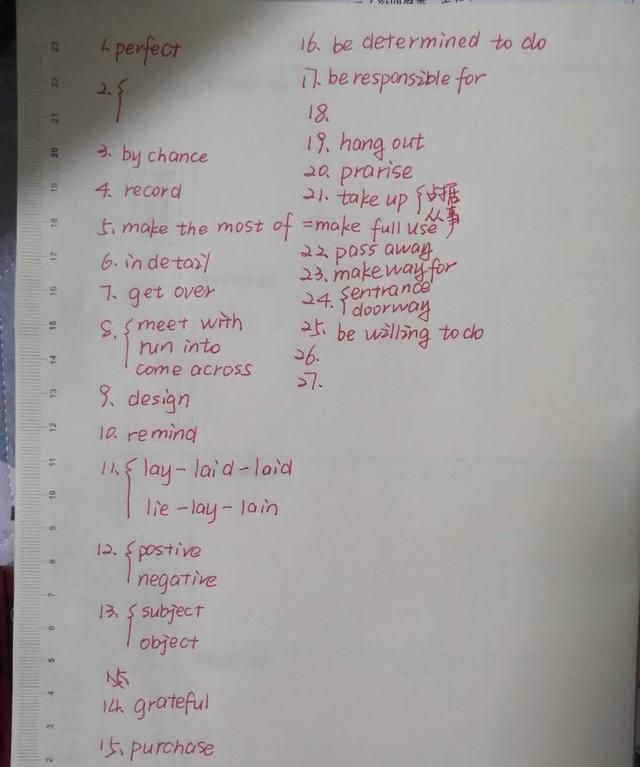 1. perfect
2. {
3. by chance
4. record
5. make the most of = make full use
6. in detail
7. get over
8. { meet with
run into
come across
9. design
10. remind
11. { lay - laid - laid
lie - lay - lain
12. { postive
negative
13. { subject
object
14. grateful
15. purchase
16. be determined to do
17. be responsible for
18.
19. hang out
20. prarise
21. take up { 占据
从事
22. pass away
23. make way for
24. { entrance
doorway
25. be willing to do
26.
27.
23
22
21
20
19
18
17
16
15
14
13
12
11
10
9
8
7
6
5
4
3
2